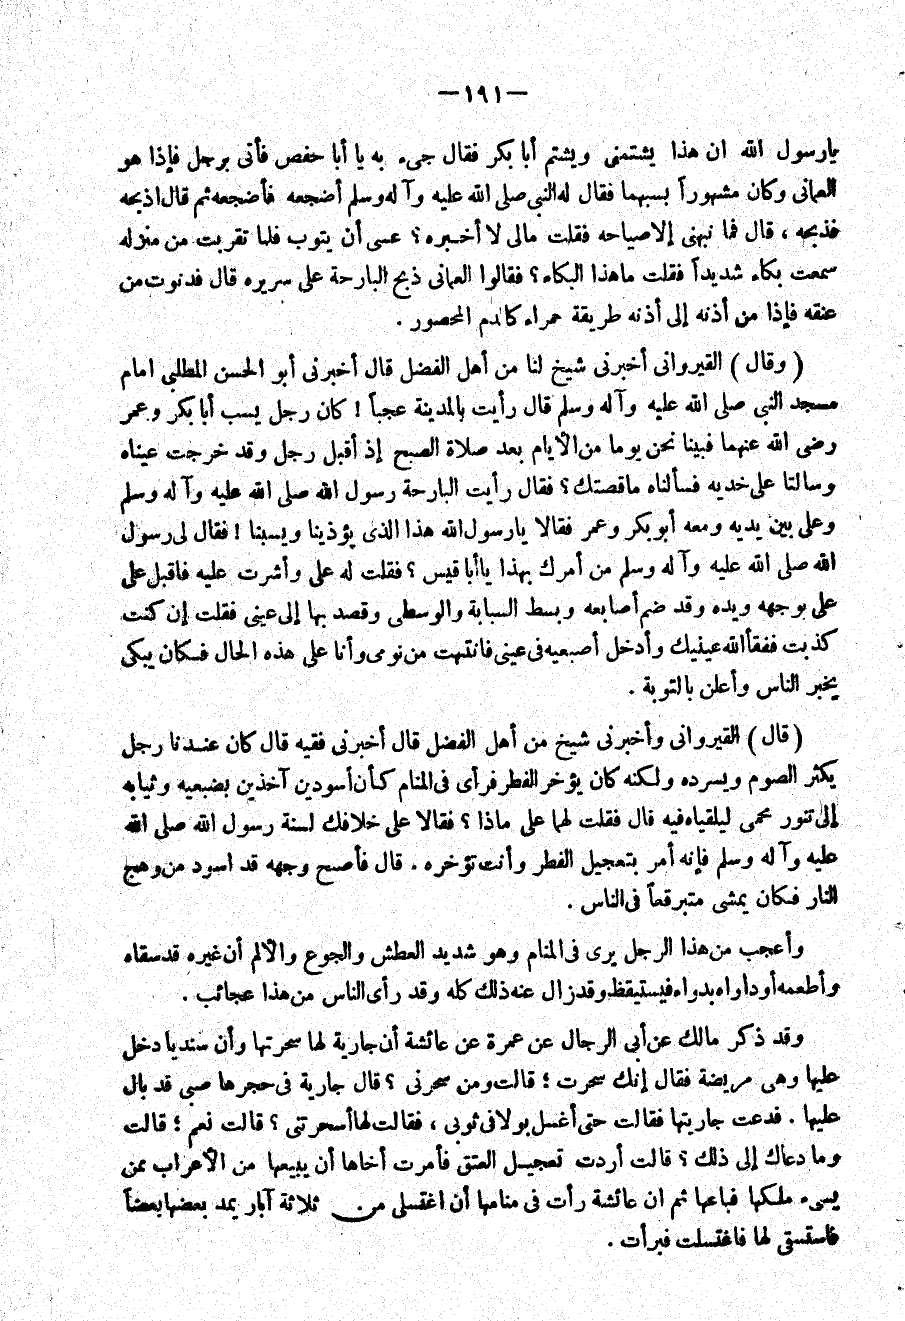 —١٩١—
يارسول الله ان هذا يشتمنى ويشتم أبا بكر فقال جىء به يا أبا حفص فأتى برجل فإذا هو
العمانى وكان مشهوراً بسبهما فقال له النبى صلى الله عليه وآله وسلم أضجعه فأضجعه ثم قال اذبحه
فذبحه ، قال فما نبهنى إلا صياحه فقلت مالى لا أخبره ؟ عسى أن يتوب فلما تقربت من منزله
سمعت بكاء شديداً فقلت ماهذا البكاء ؟ فقالوا العمانى ذبح البارحة على سريره قال فدنوت من
عنقه فإذا من أذنه إلى أذنه طريقة حمراء كالدم المحصور .
( وقال ) القيروانى أخبرنى شيخ لنا من أهل الفضل قال أخبرنى أبو الحسن المطلبى امام
مسجد النبى صلى الله عليه وآله وسلم قال رأيت بالمدينة عجباً ! كان رجل يسب أبا بكر وعمر
رضى الله عنهما فبينا نحن يوما من الأيام بعد صلاة الصبح إذ أقبل رجل وقد خرجت عيناه
وسالتا على خديه فسألناه ماقصتك ؟ فقال رأيت البارحة رسول الله صلى الله عليه وآله وسلم
وعلى بين يديه ومعه أبو بكر وعمر فقالا يارسول الله هذا الذى يؤذينا ويسبنا ! فقال لى رسول
الله صلى الله عليه وآله وسلم من أمرك بهذا ياأبا قيس ؟ فقلت له على وأشرت عليه فاقبل على
على بوجهه ويده وقد ضم أصابعه وبسط السبابة والوسطى وقصد بها إلى عينى فقلت إن كنت
كذبت ففقأ الله عينيك وأدخل أصبعيه فى عينى فانتبهت من نومى وأنا على هذه الحال فكان يبكى
يخبر الناس وأعلن بالتوبة .
( قال ) القيروانى وأخبرنى شيخ من أهل الفضل قال أخبرنى فقيه قال كان عندنا رجل
يكثر الصوم ويسرده ولكنه كان يؤخر الفطر فرأى فى المنام كأن أسودين آخذين بضبعيه وثيابه
إلى تنور محمى ليلقياه فيه قال فقلت لهما على ماذا ؟ فقالا على خلافك لسنة رسول الله صلى الله
عليه وآله وسلم فإنه أمر بتعجيل الفطر وأنت تؤخره . قال فأصبح وجهه قد اسود من وهج
النار فكان يمشى متبرقعاً فى الناس .
وأعجب من هذا الرجل يرى فى المنام وهو شديد العطش والجوع والألم أن غيره قد سقاه
وأطعمه أو داواه بدواء فيستيقظ وقد زال عنه ذلك كله وقد رأى الناس من هذا عجائب .
وقد ذكر مالك عن أبى الرجال عن عمرة عن عائشة أن جارية لها سحرتها وأن سنديا دخل
عليها وهى مريضة فقال إنك سحرت ؛ قالت ومن سحرنى ؟ قال جارية فى حجرها صبى قد بال
عليها . فدعت جاريتها فقالت حتى أغسل بولا فى ثوبى ، فقالت لها أسحرتنى ؟ قالت نعم ؛ قالت
وما دعاك إلى ذلك ؟ قالت أردت تعجيل العتق فأمرت أخاها أن يبيعها من الأعراب ممن
يسىء ملكها فباعها ثم ان عائشة رأت فى منامها أن اغتسلى من ثلاثة آبار يمد بعضها بعضاً
فاستسقى لها فاغتسلت فبرأت .